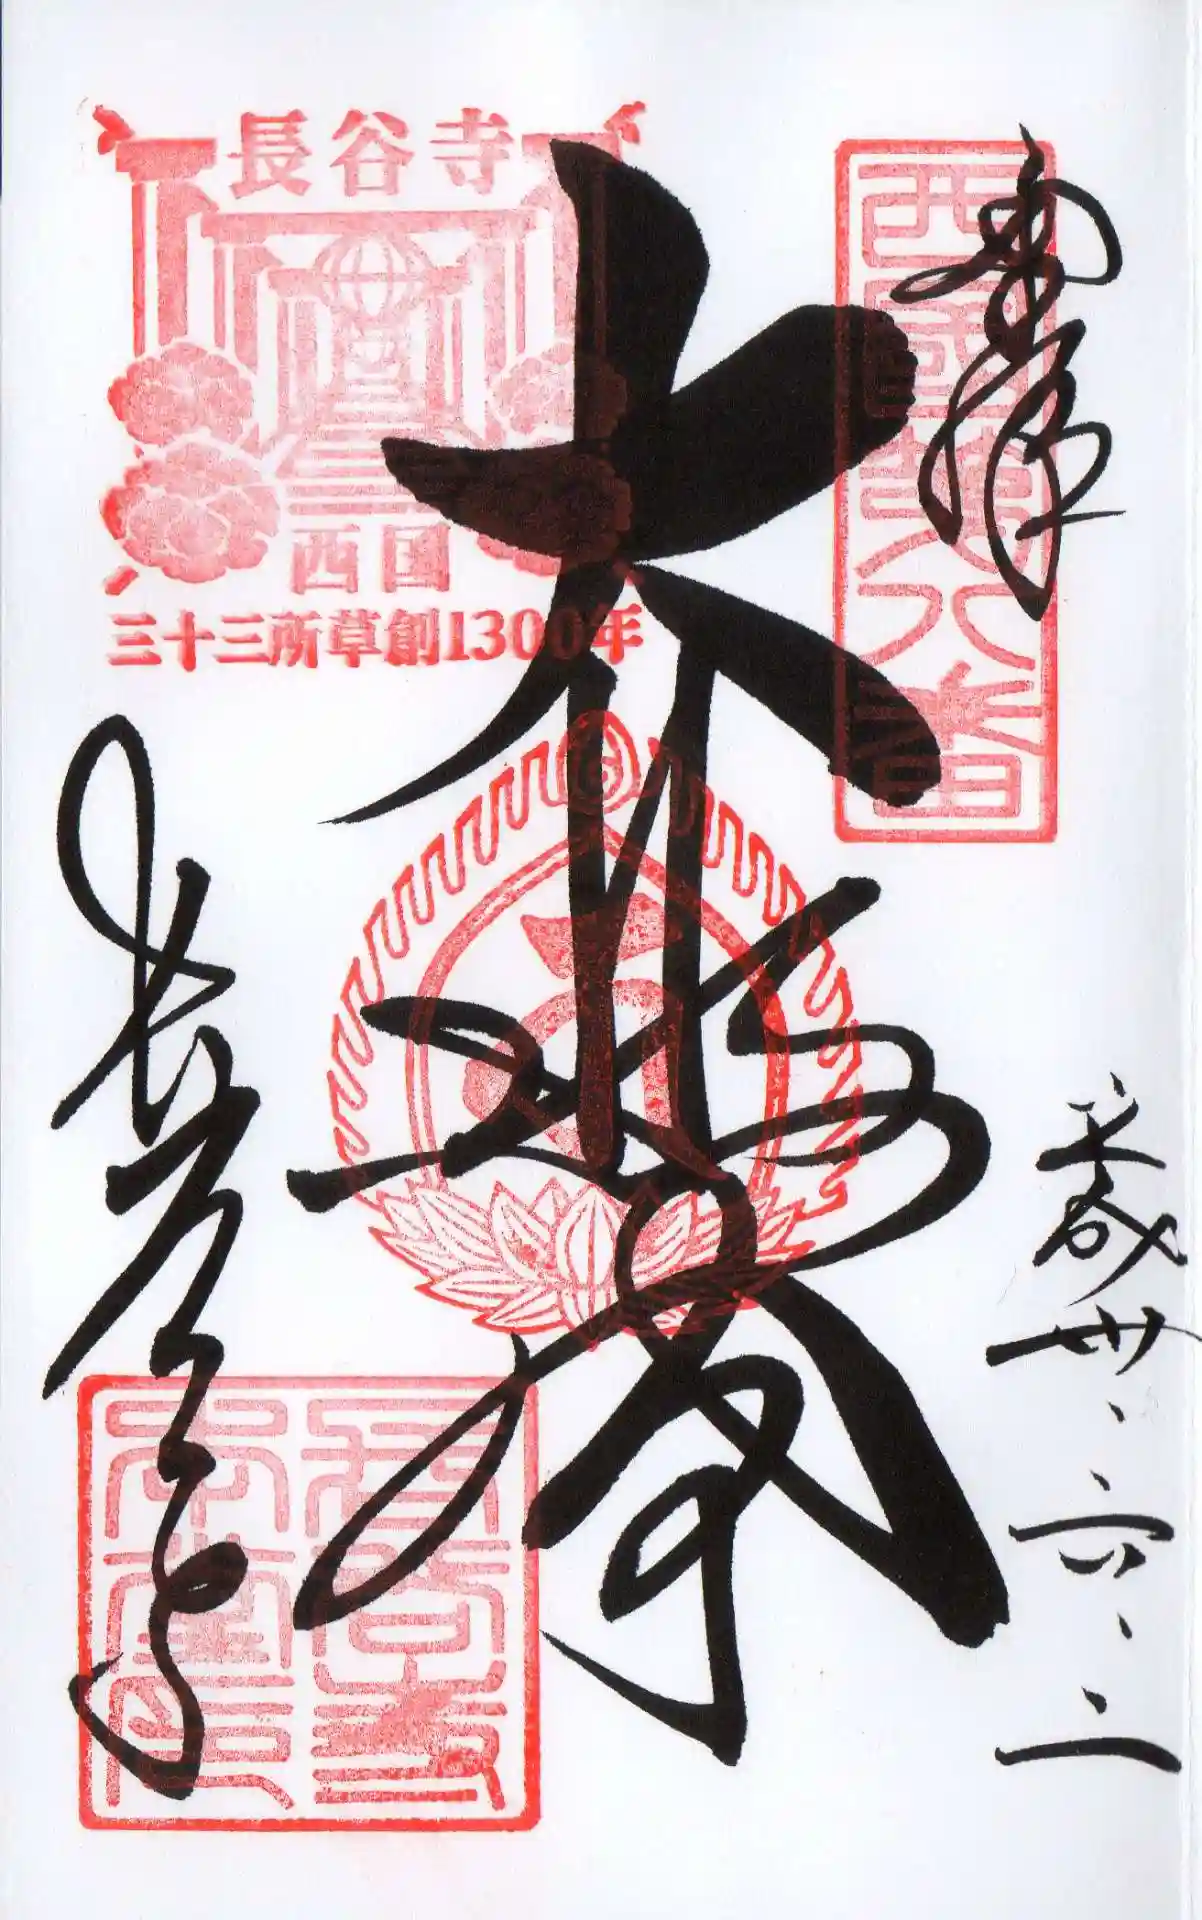 奉拝
西國第八番
平成卅、六、二
大悲閣
長谷寺
西国
三十三所草創1300年
長谷寺